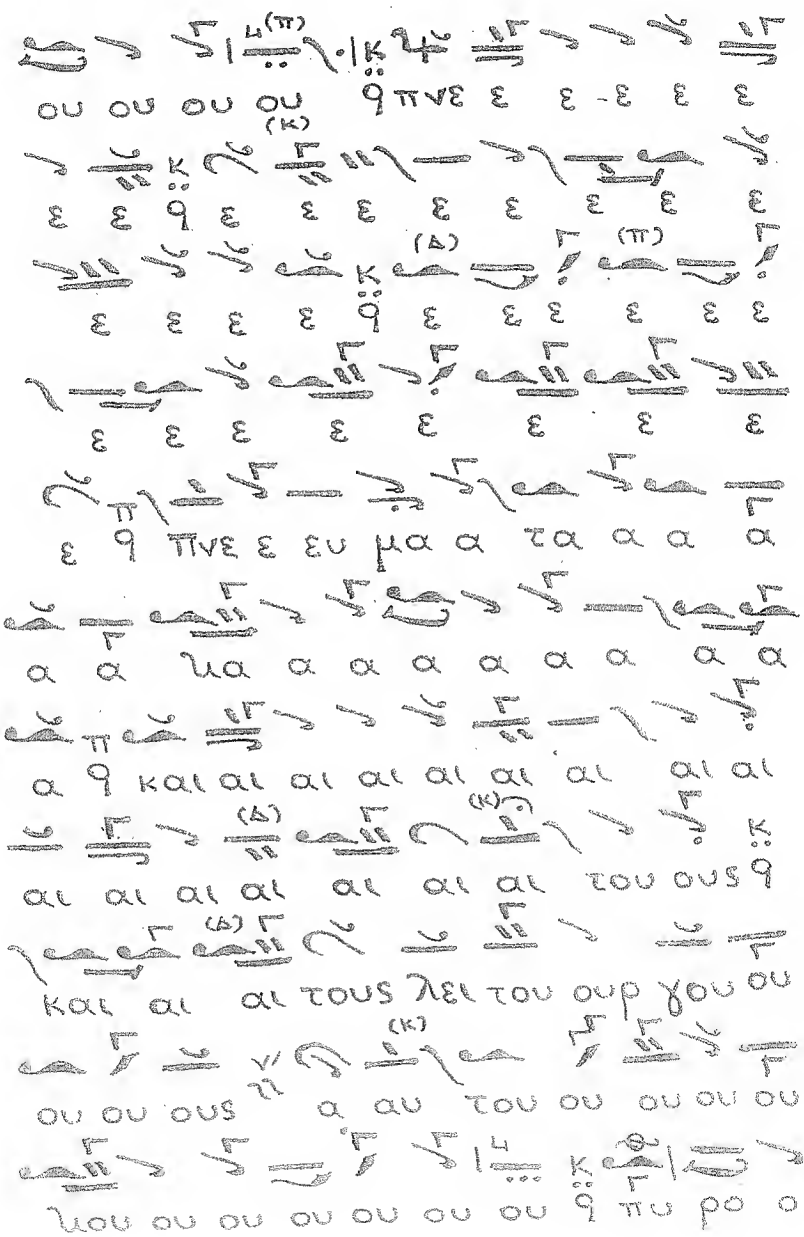 ου ου ου ου ϙ πνε ε ε - ε ε ε
ε ε ϙ ε ε ε ε ε ε ε ε
ε ε ε ε ϙ ε ε ε ε ε ε
ε ε ε ε ε ε ε ε
ε ϙ πνε ε ευ μα α τα α α α
α α χα α α α α α α α α
α ϙ και αι αι αι αι αι αι αι αι
αι αι αι αι αι αι αι του ους ϙ
και αι αι τους λει του ουρ γου ου
ου ου ους α αυ του ου ου ου ου
χου ου ου ου ου ου ου ϙ πυ ρο ο